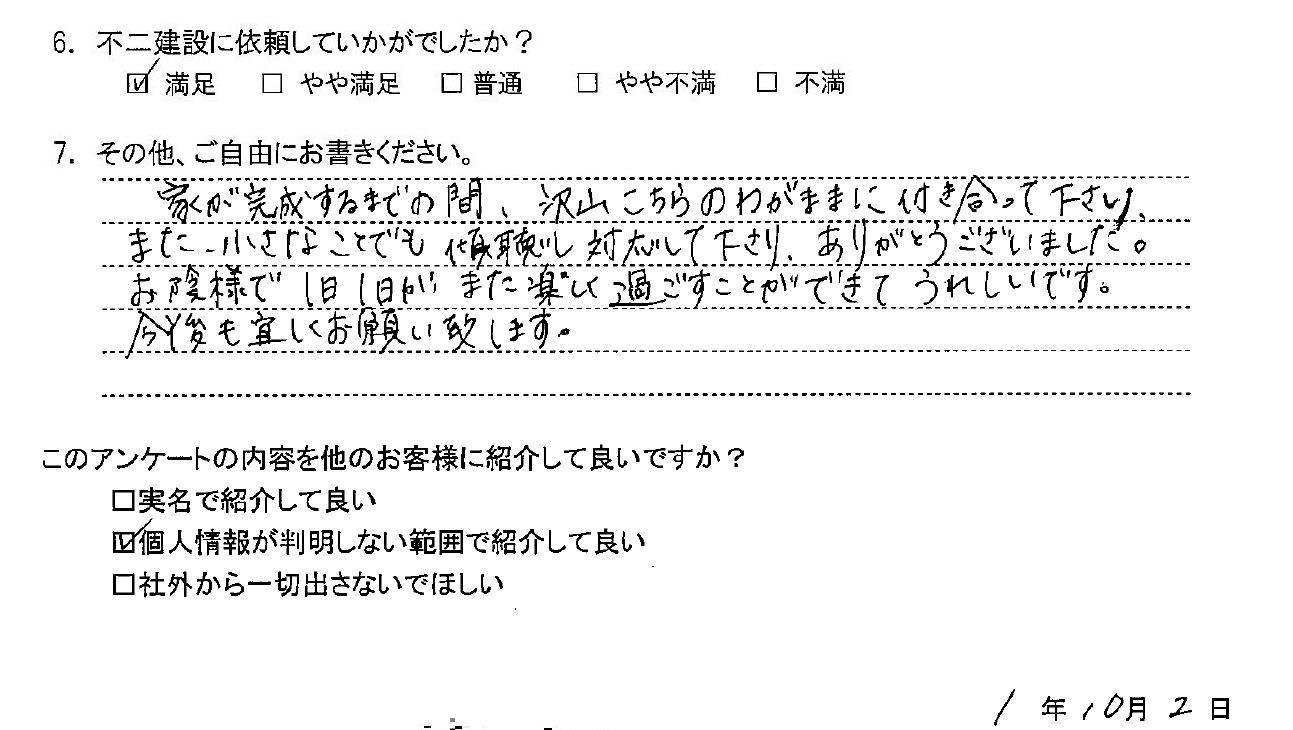 6. 不二建設に依頼していかがでしたか？
☑ 満足 □ やや満足 □ 普通 □ やや不満 □ 不満
7. その他、ご自由にお書きください。
家が完成するまでの間、沢山こちらのわがままに付き合って下さり、
また、小さなことでも傾聴し対応して下さり、ありがとうございました。
お陰様で1日1日がまた楽しく過ごすことができてうれしいです。
今後も宜しくお願い致します。
このアンケートの内容を他のお客様に紹介して良いですか？
□実名で紹介して良い
☑個人情報が判明しない範囲で紹介して良い
□社外から一切出さないでほしい
1 年 10月 2 日